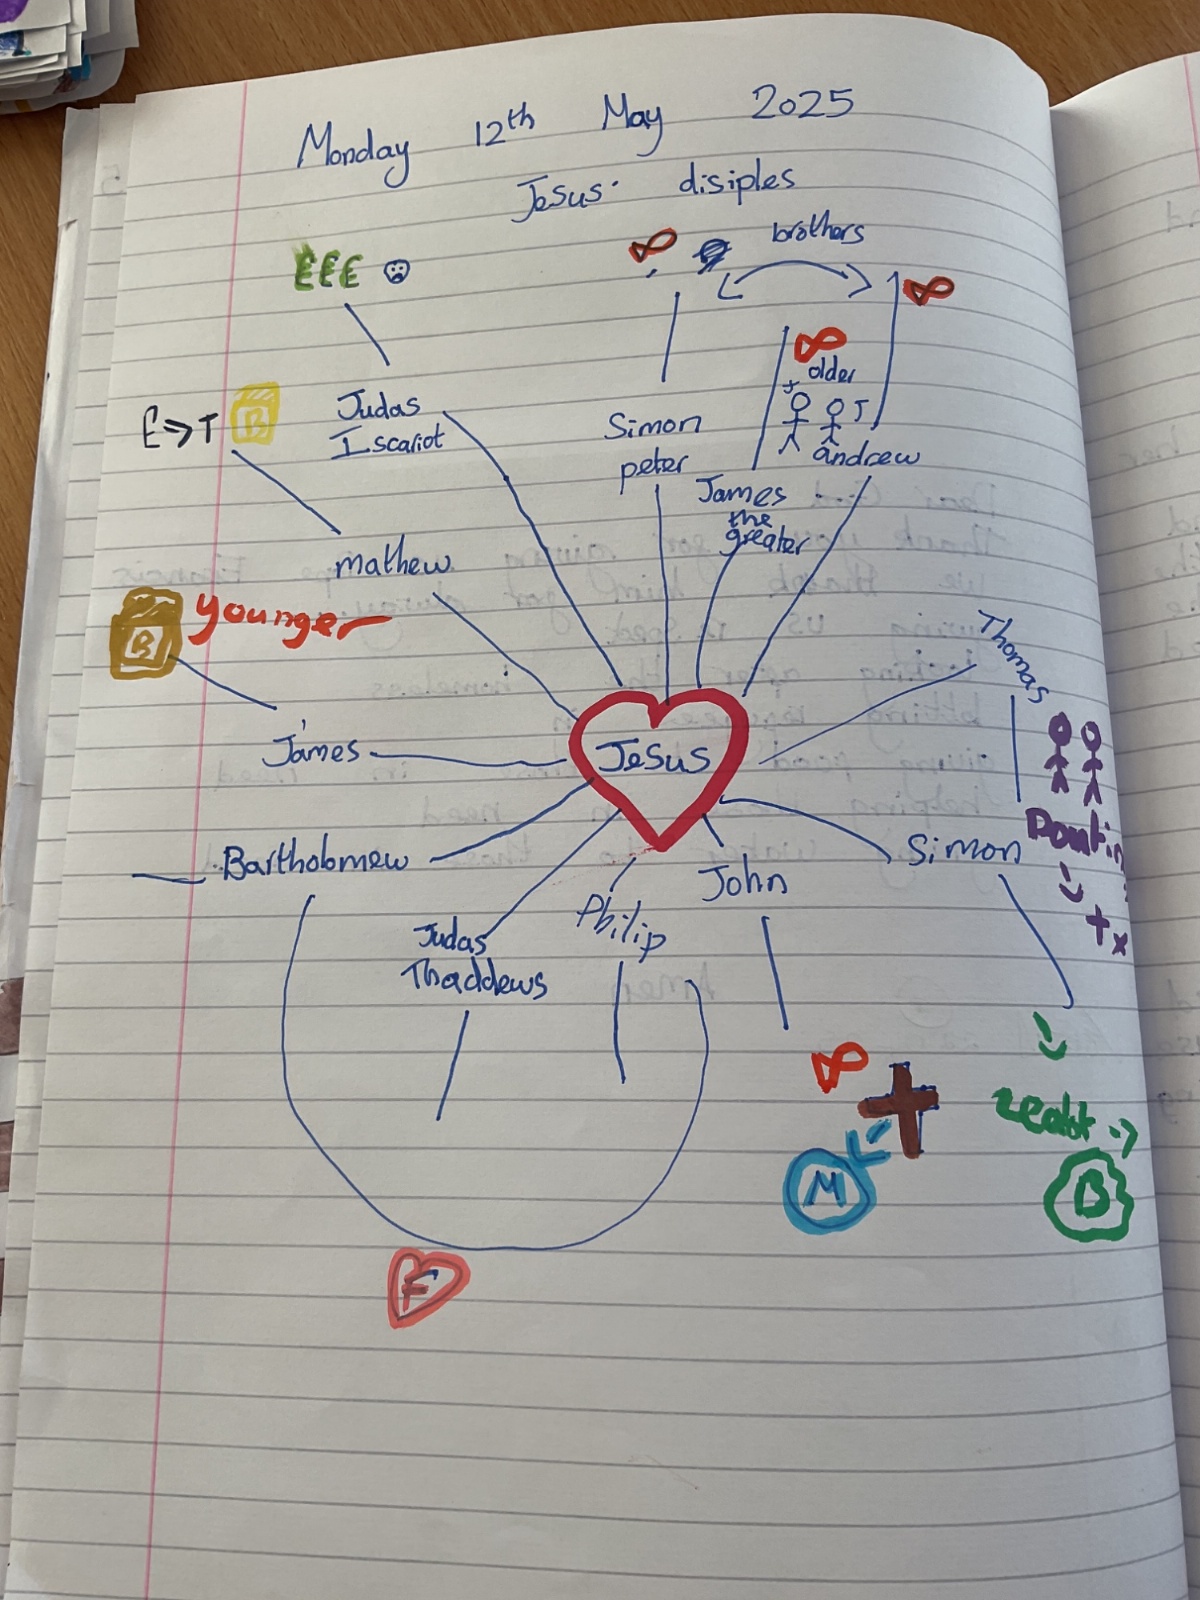 Monday 12th May 2025
Jesus' disiples
brothers
£££
older
J J
E ⇒ T B
Judas
Iscariot
Simon
peter
andrew
James
the
greater
mathew
B younger
Thomas
James
Jesus
Bartholomew
Simon
John
Philip
Judas
Thaddews
zealot
M
B
F